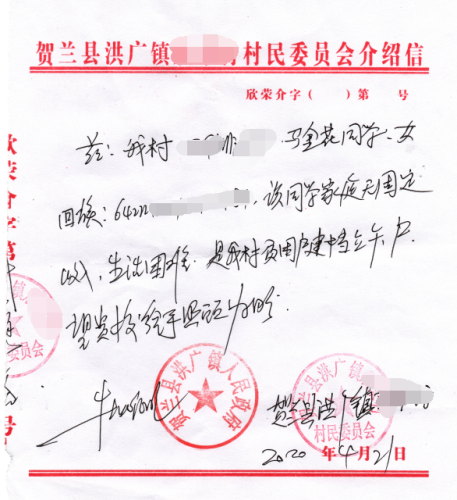 贺兰县洪广镇 村民委员会介绍信
欣荣介字( )第 号
兹:我村 马金花同学,女
回族:642 ,该同学家庭无固定
收入,生活困难,是我村贫困户建档立卡户.
望贵校给予照顾为盼
贺兰县洪广镇人民政府
贺兰县洪广镇
村民委员会
贺兰县洪广镇
2020 年4月21日
欣荣介字第
号
委员会